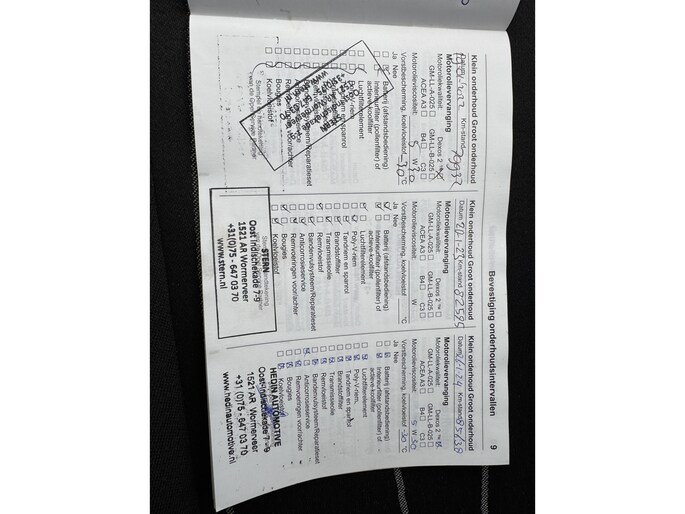 Bevestiging onderhoudsintervallen
9
Klein onderhoud Groot onderhoud
Km-stand
Motorolievervanging
Motoroliekwaliteit: Dexos 2 ™
GM-LL-A-025 GM-LL-B-025
ACEA A3 B4 C3
Motorolieviscositeit: 5 W 30
Vorstbescherming, koelvloeistof -30 °C
Ja Nee
Batterij (afstandsbediening)
Interieurfilter (pollenfilter) of
actieve-koolfilter
Luchtfilterelement
Poly-V-riem
Bougies
Koelvloeistof
STERN
Oost Indischekade 7-9
1521 AR Wormerveer
www.stern.nl
Klein onderhoud Groot onderhoud
Datum 20-1-23 Km-stand 82595
Motorolievervanging
Motoroliekwaliteit: Dexos 2 ™
GM-LL-A-025 GM-LL-B-025
ACEA A3 B4 C3
Motorolieviscositeit: W
Vorstbescherming, koelvloeistof °C
Ja Nee
Batterij (afstandsbediening)
Interieurfilter (pollenfilter) of
actieve-koolfilter
Luchtfilterelement
Poly-V-riem
Tandriem en spanrol
Brandstoffilter
Transmissieolie
Remvloeistof
Bandenvulsysteem/Reparatieset
Anticorrosieservice
Remvoeringen voor/achter
Bougies
Koelvloeistof
STERN
Oost Indischekade 7-9
1521 AR Wormerveer
+31(0)75 - 647 03 70
www.stern.nl
Klein onderhoud Groot onderhoud
Datum Km-stand
Motorolievervanging
Motoroliekwaliteit: Dexos 2 ™
GM-LL-A-025 GM-LL-B-025
ACEA A3 B4 C3
Motorolieviscositeit: 5 W 30
Vorstbescherming, koelvloeistof -30 °C
Ja Nee
Batterij (afstandsbediening)
Interieurfilter (pollenfilter) of
actieve-koolfilter
Luchtfilterelement
Poly-V-riem
Tandriem en spanrol
Brandstoffilter
Transmissieolie
Remvloeistof
Bandenvulsysteem/Reparatieset
Anticorrosieservice
Remvoeringen voor/achter
Bougies
Koelvloeistof
HEDIN AUTOMOTIVE
Oost Indischekade 7 - 9
1521 AR Wormerveer
+31 (0)75 - 647 03 70
www.hedinautomotive.nl